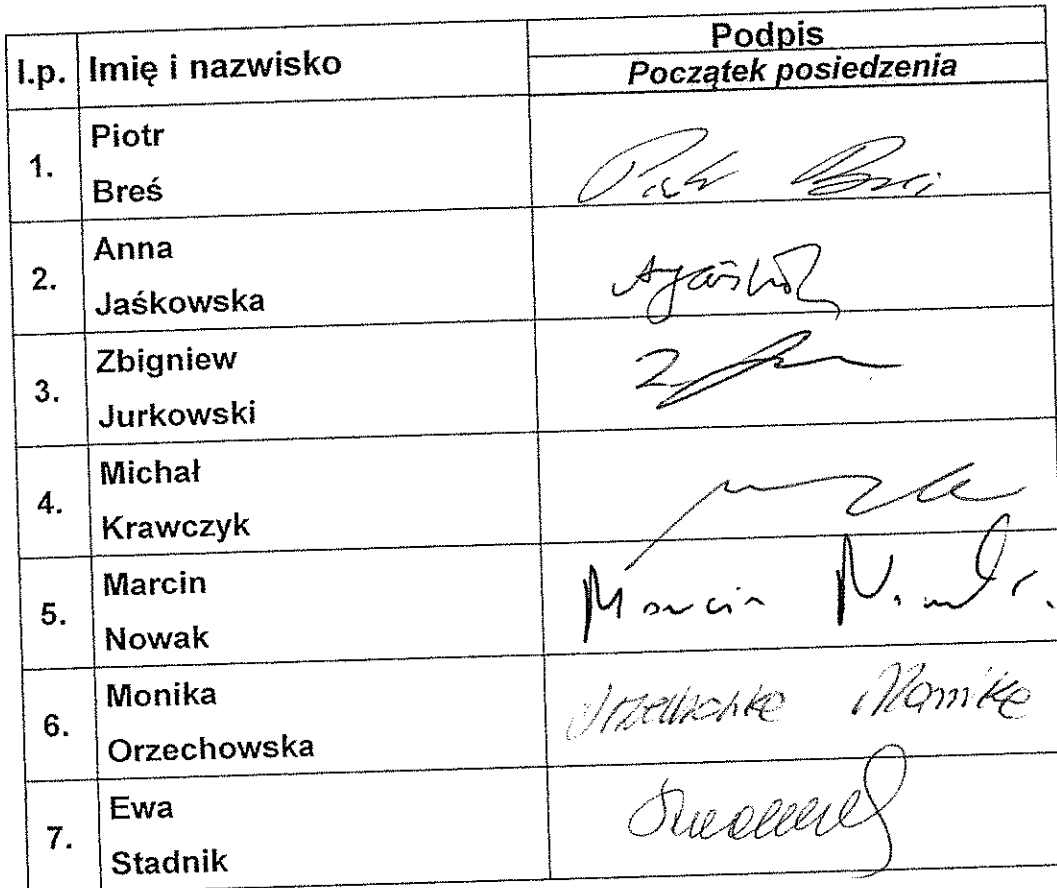 l.p. Imię i nazwisko Podpis
Początek posiedzenia
1. Piotr
Breś
2. Anna
Jaśkowska
3. Zbigniew
Jurkowski
4. Michał
Krawczyk
5. Marcin
Nowak
Marcin
6. Monika
Orzechowska
Monika
7. Ewa
Stadnik